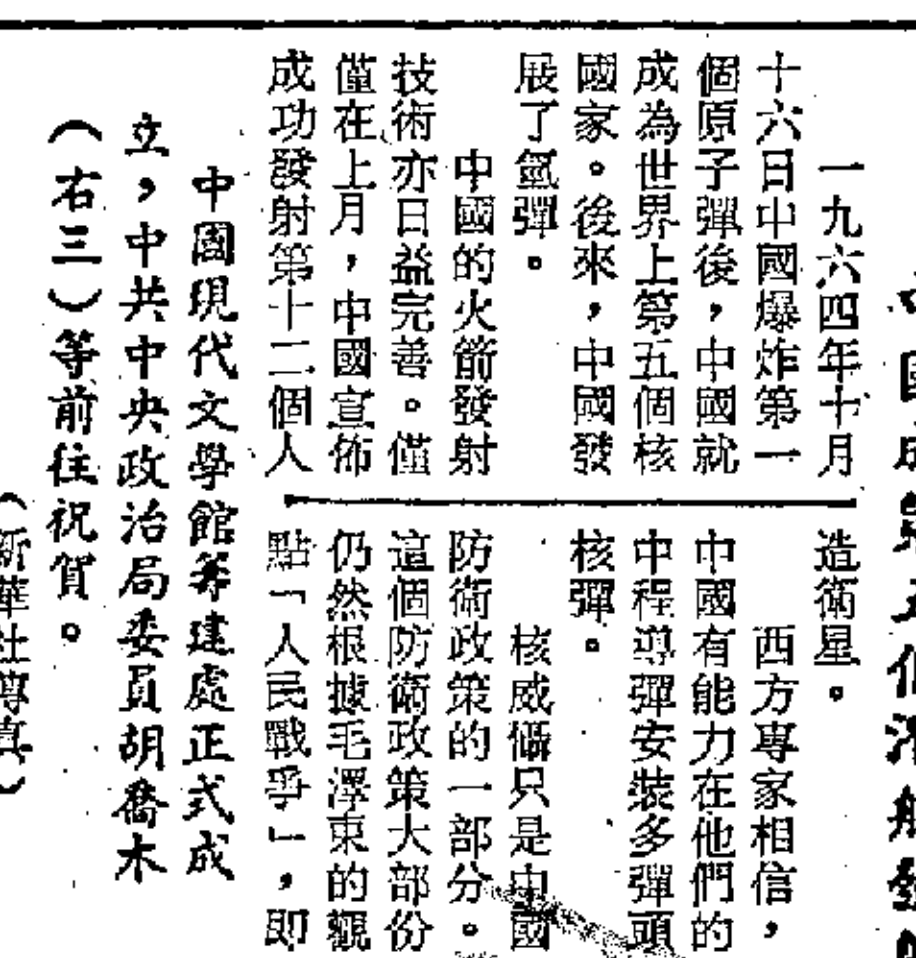 一九六四年十月
十六日中國爆炸第一
個原子彈後，中國就
成為世界上第五個核
國家。後來，中國發
展了氫彈。
中國的火箭發射
技術亦日益完善。僅
僅在上月，中國宣佈
成功發射第十二個人
造衛星。
西方專家相信，
中國有能力在他們的
中程導彈安裝多彈頭
核彈。
核威懾只是中國
防衛政策的一部分。
這個防衛政策大部份
仍然根據毛澤東的觀
點「人民戰爭」，即
中國現代文學館籌建處正式成
立，中共中央政治局委員胡喬木
（右三）等前往祝賀。
（新華社傳真）